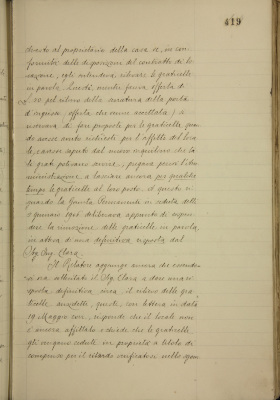 419
dovuto al proprietario della casa e, in con
formità delle disposizioni del contratto di lo
cazione, egli intendeva ritirare le graticelle
in parole. Suddì, mentre faceva offerta di
L. 20 pel ritiro della armatura della porta
d'ingresso (offerta che venne accettata) si
riservava di fare proposte per le graticelle, quan
do avesse avuto richieste per l'affitto del loca
le, e avesse saputo dal nuovo inquilino che ta
li grate potevano servire, pregava poscia l'Am
ministrazione a lasciare ancora per qualche
tempo le graticelle al loro posto. A questo ri
guardo la Giunta Permanente in seduta delli
2 Gennaio 1905 deliberava appunto di sospen
dere la rimozione delle graticelle in parola,
in attesa di una definitiva risposta dal
Sig. Eug. Clara.
Il Relatore aggiunge ancora che essendo
si ora sollecitato il Sig. Clara a dare una ri
sposta definitiva circa il ritiro delle gra
ticelle anzidette, questi, con lettera in data
19 Maggio corr., risponde che il locale non
è ancora affittato e chiede che le graticelle
gli vengano cedute in proprietà a titolo di
compenso per il ritardo verificatosi nello sgom